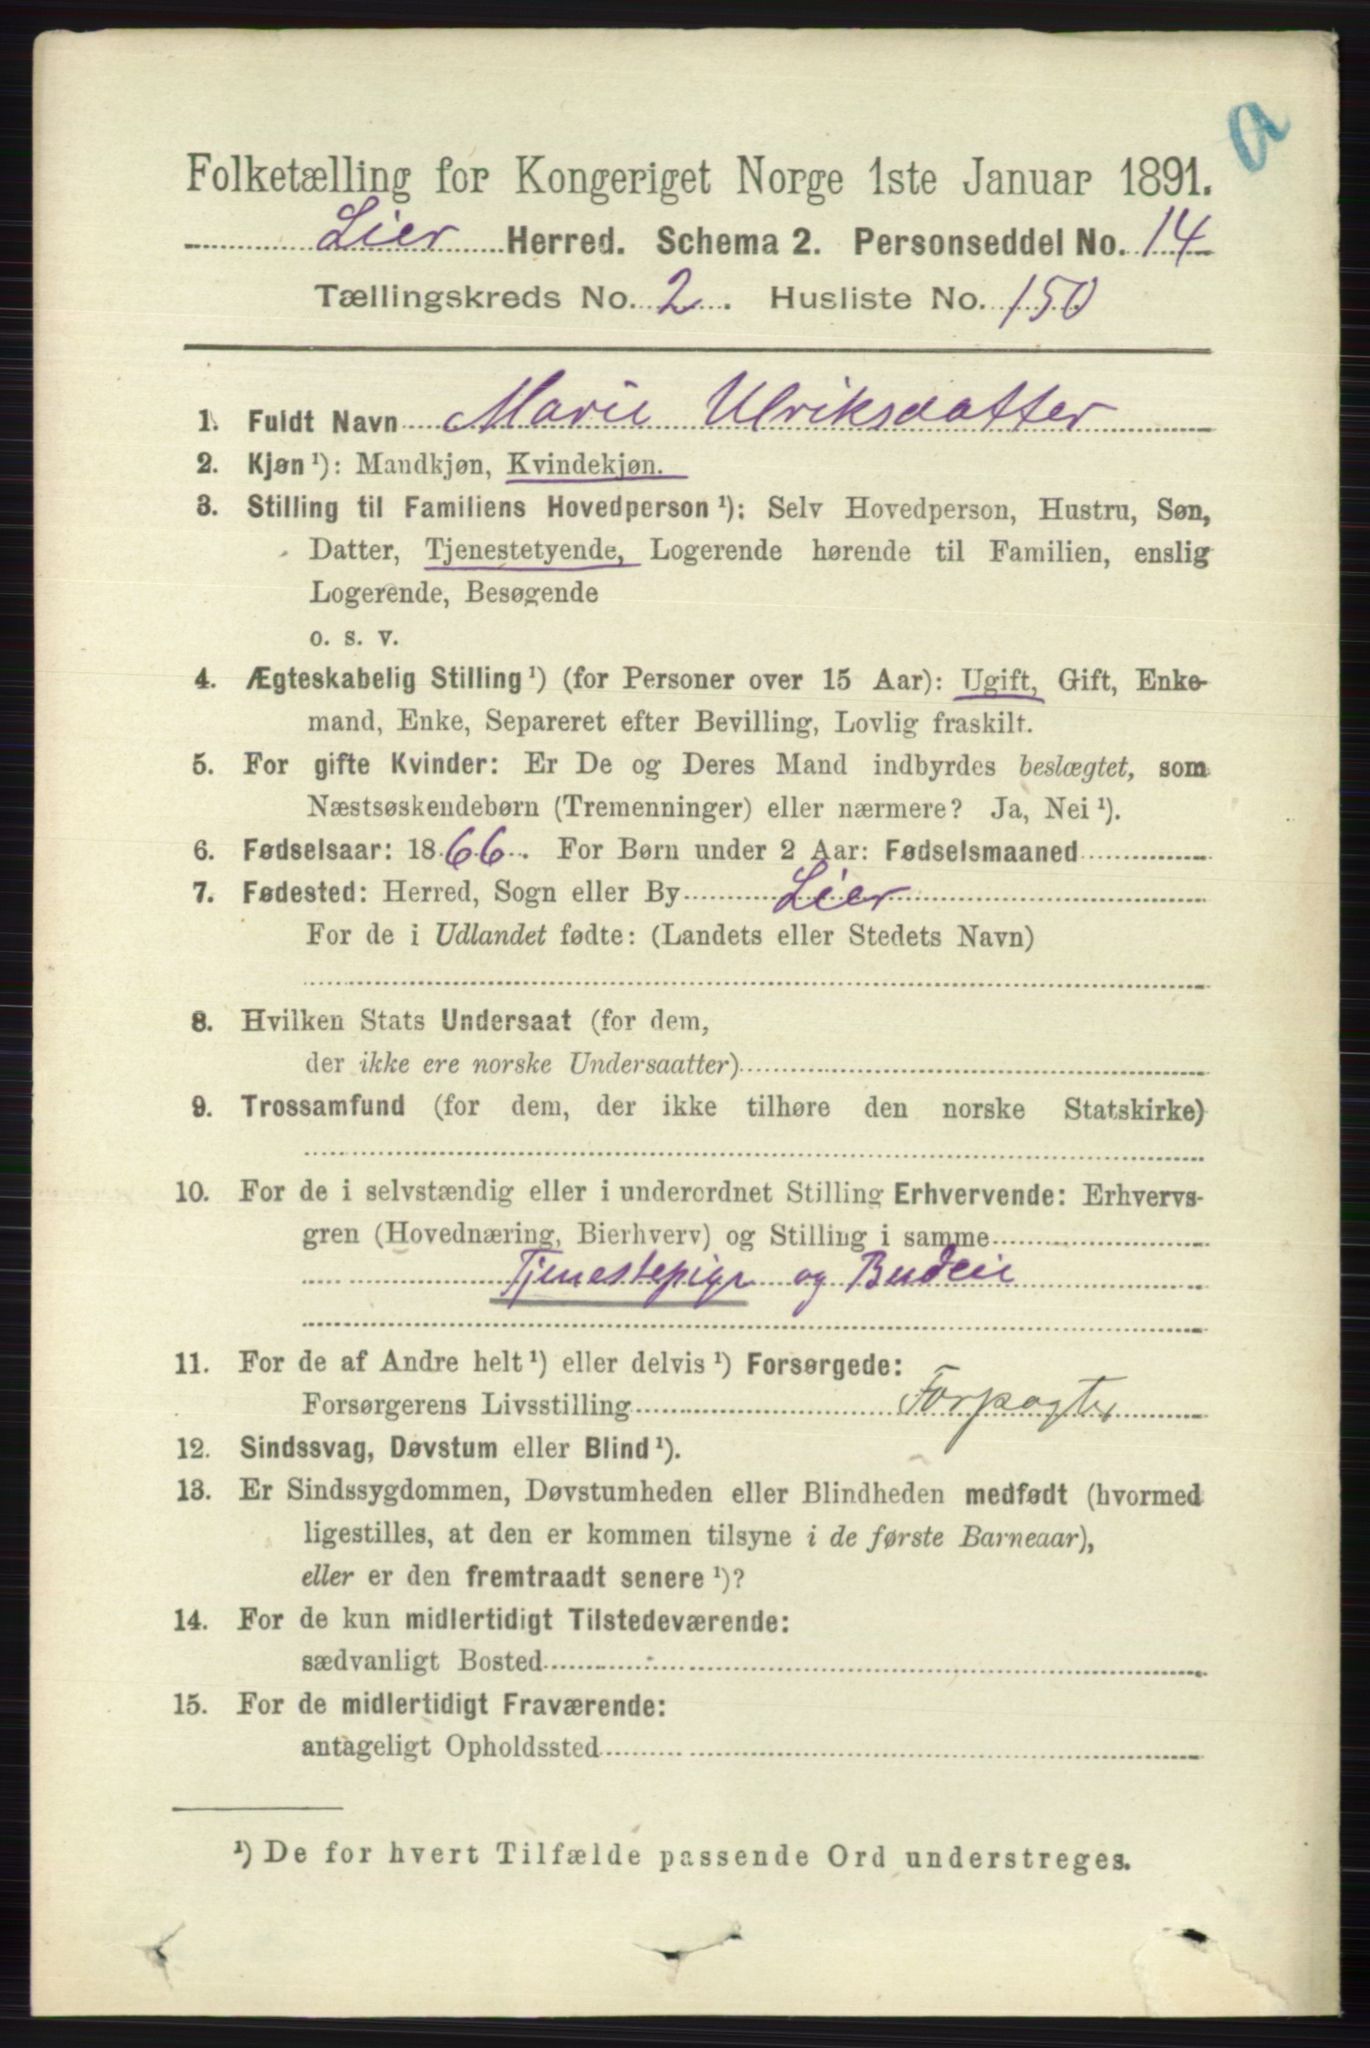 a
Folketælling for Kongeriget Norge 1ste Januar 1891.
Lier Herred. Schema 2. Personseddel No. 14
Tællingskreds No. 2. Husliste No. 150
1. Fuldt Navn Marie Ulriksdatter
2. Kjøn ¹): Mandkjøn, Kvindekjøn.
3. Stilling til Familiens Hovedperson ¹): Selv Hovedperson, Hustru, Søn,
Datter, Tjenestetyende, Logerende hørende til Familien, enslig
Logerende, Besøgende
o. s. v.
4. Ægteskabelig Stilling ¹) (for Personer over 15 Aar): Ugift, Gift, Enke-
mand, Enke, Separeret efter Bevilling, Lovlig fraskilt.
5. For gifte Kvinder: Er De og Deres Mand indbyrdes beslægtet, som
Næstsøskendebørn (Tremenninger) eller nærmere? Ja, Nei ¹).
6. Fødselsaar: 1866. For Børn under 2 Aar: Fødselsmaaned
7. Fødested: Herred, Sogn eller By Lier
For de i Udlandet fødte: (Landets eller Stedets Navn)
8. Hvilken Stats Undersaat (for dem,
der ikke ere norske Undersaatter)
9. Trossamfund (for dem, der ikke tilhøre den norske Statskirke)
10. For de i selvstændig eller i underordnet Stilling Erhvervende: Erhvervs-
gren (Hovednæring, Bierhverv) og Stilling i samme
Tjenestepige og Budeie
11. For de af Andre helt ¹) eller delvis ¹) Forsørgede:
Forsørgerens Livsstilling Forpagter
12. Sindssvag, Døvstum eller Blind ¹).
13. Er Sindssygdommen, Døvstumheden eller Blindheden medfødt (hvormed
ligestilles, at den er kommen tilsyne i de første Barneaar),
eller er den fremtraadt senere ¹)?
14. For de kun midlertidigt Tilstedeværende:
sædvanligt Bosted
15. For de midlertidigt Fraværende:
antageligt Opholdssted
¹) De for hvert Tilfælde passende Ord understreges.